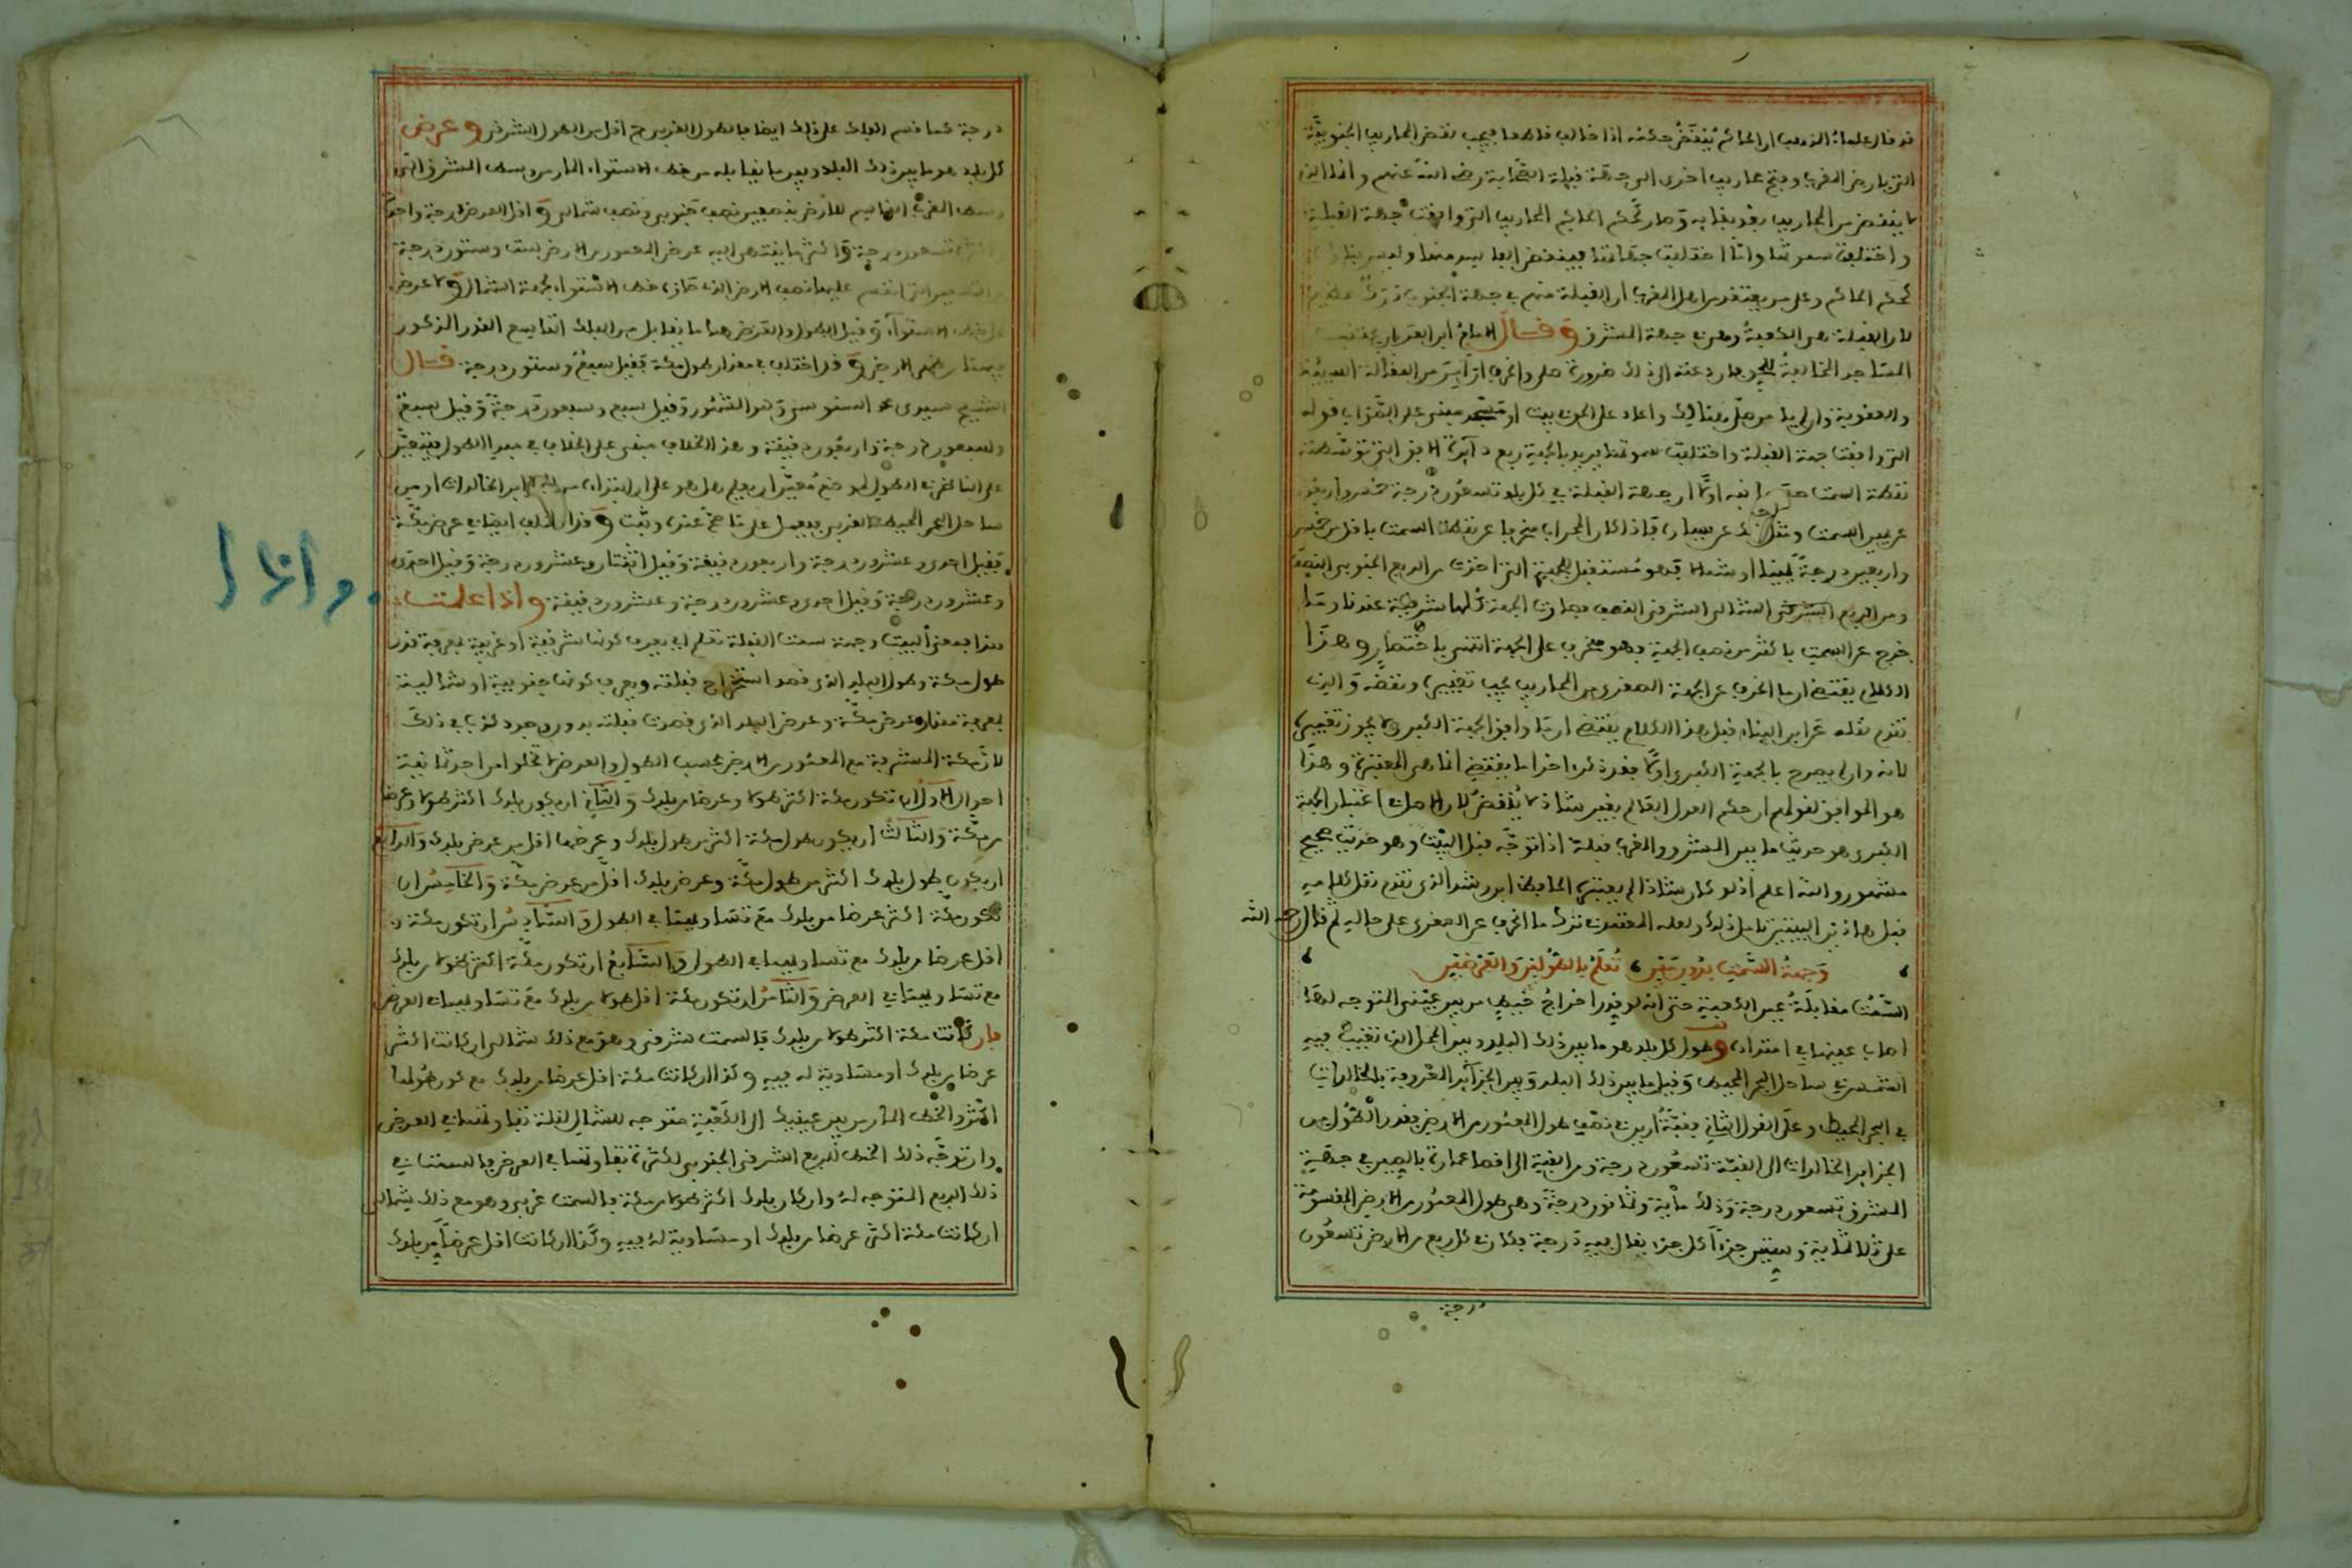 قد قال علماء المذهب ان الحاكم ينقض حكمه اذا خالف قاطعا فيجب نقض المحاريب الجنوبية
التي بارض المغرب وفتح محاريب اخرى الى جهة قبلة الصحابة رضي الله عنهم وانما الذي
لا ينقض من المحاريب بعد بنائه وصار كحكم الحاكم المحاريب التي وافقت جهة القبلة
واختلفت سموتها واما اختلفت جهاتها فينقض الفاسد منها وليس بناؤه
كحكم الحاكم وعلى من يعتقد من اهل المغرب ان القبلة منهم في جهة الجنوب درك عظيم
لان القبلة هي الكعبة وهي في جهة المشرق وقال الامام
المساجد
والعقوبة
التي وافقت جهة القبلة واختلفت سموتها يريد بالجهة ربع دائرة الافق التي توسطته
نقطة السمت اولا ان جهة القبلة في كل بلد تسعون درجة خمس واربعون
عن يمين السمت ومثل ذلك عن يساره فاذا كان المحراب منحرفا عن نقطة السمت باقل من خمس
واربعين درجة يمينا او شمالا فهو مستقبل للجهة التي اخذت من الربع الجنوبي النصف
ومن الربع الشرقي الشمالي الشرقي النصف فصارت الجهة كلها شرقية عندنا وما
خرج عن السمت باكثر من نصف الجهة فهو منحرف على الجهة انتهى باختصار وهذا
الكلام يقتضي ان ما انحرف عن الجهة الصغرى من المحاريب يجب تغييره ونقضه والذي
تقدم نقله عن ابن البناء قبل هذا الكلام يقتضي ان ما وافق الجهة الكبرى لا يجوز تغييره
لانه وان لم يصرح بالجهة الكبرى اولا فقد ذكر اخرا ما يقتضي انها هي المعتبرة وهذا
هو الموافق لقولهم ان حكم العدل العالم بغير شاذ لا ينقض لان اصل اعتبار الجهة
الكبرى هو حديث ما بين المشرق والمغرب قبلة اذا توجه قبل البيت وهو حديث صحيح
مشهور والله اعلم اذ لو كان شاذا لم يعتبره الحافظ ابن رشد الذي تقدم نقل كلامه
قبل هاذين البيتين تامل ذلك ولعله المعتمد ترك ما انحرف عن الصغرى على حاله ثم قال رحمه الله
وجهة السمت بدون مين ، تعلم بالطولين والعرضين
السمت مقابلة عين الكعبة حتى انه لو قدر اخراج خيط من بين عيني المتوجه لها
اصاب عينها في امتداده وطول كل بلد هو ما بين ذلك البلد وبين المحل الذي تغيب فيه
الشمس في ساحل البحر المحيط وقيل ما بين ذلك البلد وبين الجزائر المعروفة بالخالدات
في البحر المحيط وعلى القول الثاني فقبة ارين نصف طول المعمور من الارض فقدر الطول من
الجزائر الخالدات الى القبة تسعون درجة ومن القبة الى اقصا عمارة بالصين في جهة
المشرق تسعون درجة وذلك مائة وثمانون درجة وهي طول المعمور من الارض المقسومة
على ثلاثمائة وستين جزءا كل جزء يقال فيه درجة فكان كل ربع من الارض تسعون
درجة
درجة كما قسم الفلك على ذلك ايضا فالطول الغربي ح اقل من الطول الشرقي وعرض
كل بلد هو ما بين ذلك البلد وبين ما يقابله من خط الاستواء المار من وسط المشرق الى
وسط المغرب القاسم للارض بنصفين نصف جنوبي ونصف شمالي واقل العرض درجة واحدة
تسعون درجة واكثر ما ينتهي اليه عرض المعمور من الارض ست وستون درجة
عليها نصف الارض الذي حازه خط الاستواء لجهة الشمال ولا عرض
على خط الاستواء وقيل الطول والعرض هما ما يقابل من الفلك اقاليم القدر المذكور
الارض وقد اختلف في مقدار طول مكة فقيل سبعة وستون درجة قال
الشيخ سيدي محمد السنوسي وهو المشهور وقيل سبع وسبعون درجة وقيل سبعة
وسبعون درجة واربعون دقيقة وهذا الخلاف مبني على الخلاف في مبدإ الطول
ساحل البحر المحيط الغربي فيعمل على ما صح عنده وثبت وقد اختلف ايضا في عرض مكة
فقيل احدى وعشرون درجة واربعون دقيقة وقيل اثنتان وعشرون درجة وقيل احدى
وعشرون درجة وقيل احدى وعشرون درجة وعشرون دقيقة واذا علمت
هذا فمعنى البيت وجهة سمت القبلة تعلم اي يعرف كونها شرقية او غربية بمعرفة قدر
طول مكة وطول البلد الذي قصد استخراج قبلته ويعرف كونها جنوبية او شمالية
بمعرفة مقدار عرض مكة وعرض البلد الذي قصدت قبلته بدون وجود كذب في ذلك
لان مكة المشرفة مع المعمور من الارض بحسب الطول والعرض لا تخلو من احد ثمانية
احوال الاول ان تكون مكة اكثر طولا وعرضا من بلدك والثاني ان يكون بلدك اكثر طولا وعرضا
من مكة والثالث ان يكون طول مكة اكثر من طول بلدك وعرضها اقل من عرض بلدك والرابع
ان يكون طول بلدك اكثر من طول مكة وعرض بلدك اقل من عرض مكة والخامس ان
تكون مكة اكثر عرضا من بلدك مع تساويهما في الطول والسادس ان تكون مكة
اقل عرضا من بلدك مع تساويهما في الطول والسابع ان تكون مكة اكثر طولا من بلدك
مع تساويهما في العرض والثامن ان تكون مكة اقل طولا من بلدك مع تساويهما في العرض
فان كانت مكة اكثر طولا من بلدك فالسمت شرقي وهو مع ذلك شمالي ان كانت اكثر
عرضا من بلدك او مساوية له فيه وكذا ان كانت مكة اقل عرضا من بلدك مع كون طولها
اكثر والخط المار من بين عينيك الى الكعبة متوجه للشمال لقلة تفاوتهما في العرض
وان توجه ذلك الخط للربع الشرقي الجنوبي لكثرة تفاوتهما في العرض فالسمت في
ذلك الربع المتوجه له وان كان بلدك اكثر طولا من مكة فالسمت غربي وهو مع ذلك شمالي
ان كانت مكة اكثر عرضا من بلدك او مساوية له فيه وكذا ان كانت اقل عرضا من بلدك
واذا